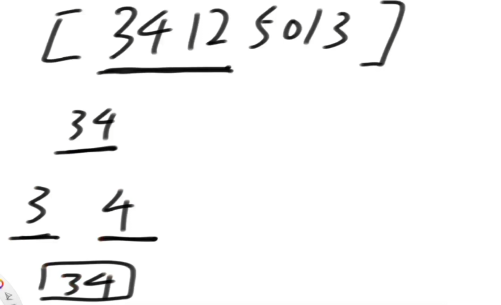 [ 3412 5013 ]
34
3 4
34